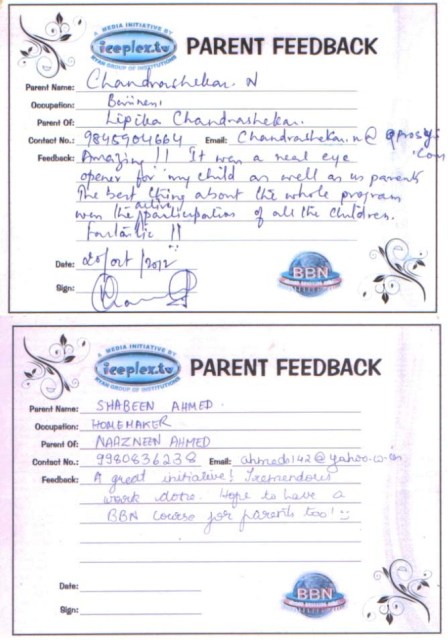 A MEDIA INITIATIVE BY
iceplex.tv
RYAN GROUP OF INSTITUTIONS
PARENT FEEDBACK
Parent Name: Chandrashekar. N
Occupation: Business
Parent Of: Lipika Chandrashekar.
Contact No.: 9845904664 Email: Chandrashekar.n@
.com
Feedback: Amazing !! It was a real eye
opener for my child as well as us parents
The best thing about the whole program
was the active participation of all the children.
Fantastic !!
Date: 20/Oct/2012
Sign:
BBN
A MEDIA INITIATIVE BY
iceplex.tv
RYAN GROUP OF INSTITUTIONS
PARENT FEEDBACK
Parent Name: SHABEEN AHMED.
Occupation: HOMEMAKER
Parent Of: NAAZNEEN AHMED
Contact No.: 9980836238 Email: ahmeds142@yahoo.co.in
Feedback: A great initiative! Tremendous
work done. Hope to have a
BBN course for parents too! :)
Date:
Sign:
BBN